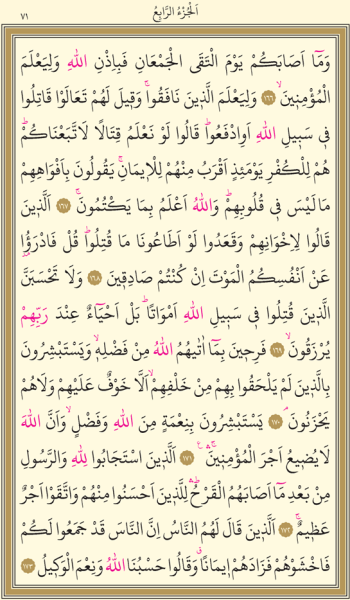 اَلْجُزْءُ الرَّابِعُ
٧١
وَمَٓا اَصَابَكُمْ يَوْمَ الْتَقَى الْجَمْعَانِ فَبِاِذْنِ اللّٰهِ وَلِيَعْلَمَ
الْمُؤْمِن۪ينَۙ ﴿١٦٦﴾ وَلِيَعْلَمَ الَّذ۪ينَ نَافَقُواۚ وَق۪يلَ لَهُمْ تَعَالَوْا قَاتِلُوا
ف۪ي سَب۪يلِ اللّٰهِ اَوِادْفَعُواۜ قَالُوا لَوْ نَعْلَمُ قِتَالًا لَاتَّبَعْنَاكُمْۜ
هُمْ لِلْكُفْرِ يَوْمَئِذٍ اَقْرَبُ مِنْهُمْ لِلْا۪يمَانِۚ يَقُولُونَ بِاَفْوَاهِهِمْ
مَا لَيْسَ ف۪ي قُلُوبِهِمْۜ وَاللّٰهُ اَعْلَمُ بِمَا يَكْتُمُونَۚ ﴿١٦٧﴾ اَلَّذ۪ينَ
قَالُوا لِاِخْوَانِهِمْ وَقَعَدُوا لَوْ اَطَاعُونَا مَا قُتِلُواۜ قُلْ فَادْرَؤُ۫ا
عَنْ اَنْفُسِكُمُ الْمَوْتَ اِنْ كُنْتُمْ صَادِق۪ينَ ﴿١٦٨﴾ وَلَا تَحْسَبَنَّ
الَّذ۪ينَ قُتِلُوا ف۪ي سَب۪يلِ اللّٰهِ اَمْوَاتًاۜ بَلْ اَحْيَٓاءٌ عِنْدَ رَبِّهِمْ
يُرْزَقُونَۙ ﴿١٦٩﴾ فَرِح۪ينَ بِمَٓا اٰتٰيهُمُ اللّٰهُ مِنْ فَضْلِه۪ۙ وَيَسْتَبْشِرُونَ
بِالَّذ۪ينَ لَمْ يَلْحَقُوا بِهِمْ مِنْ خَلْفِهِمْۙ اَلَّا خَوْفٌ عَلَيْهِمْ وَلَاهُمْ
يَحْزَنُونَۢ ﴿١٧٠﴾ يَسْتَبْشِرُونَ بِنِعْمَةٍ مِنَ اللّٰهِ وَفَضْلٍۙ وَاَنَّ اللّٰهَ
لَا يُض۪يعُ اَجْرَ الْمُؤْمِن۪ينَۚۛ ﴿١٧١﴾ اَلَّذ۪ينَ اسْتَجَابُوا لِلّٰهِ وَالرَّسُولِ
مِنْ بَعْدِ مَٓا اَصَابَهُمُ الْقَرْحُۜۛ لِلَّذ۪ينَ اَحْسَنُوا مِنْهُمْ وَاتَّقَوْا اَجْرٌ
عَظ۪يمٌۚ ﴿١٧٢﴾ اَلَّذ۪ينَ قَالَ لَهُمُ النَّاسُ اِنَّ النَّاسَ قَدْ جَمَعُوا لَكُمْ
فَاخْشَوْهُمْ فَزَادَهُمْ ا۪يمَانًاۗ وَقَالُوا حَسْبُنَا اللّٰهُ وَنِعْمَ الْوَك۪يلُ ﴿١٧٣﴾